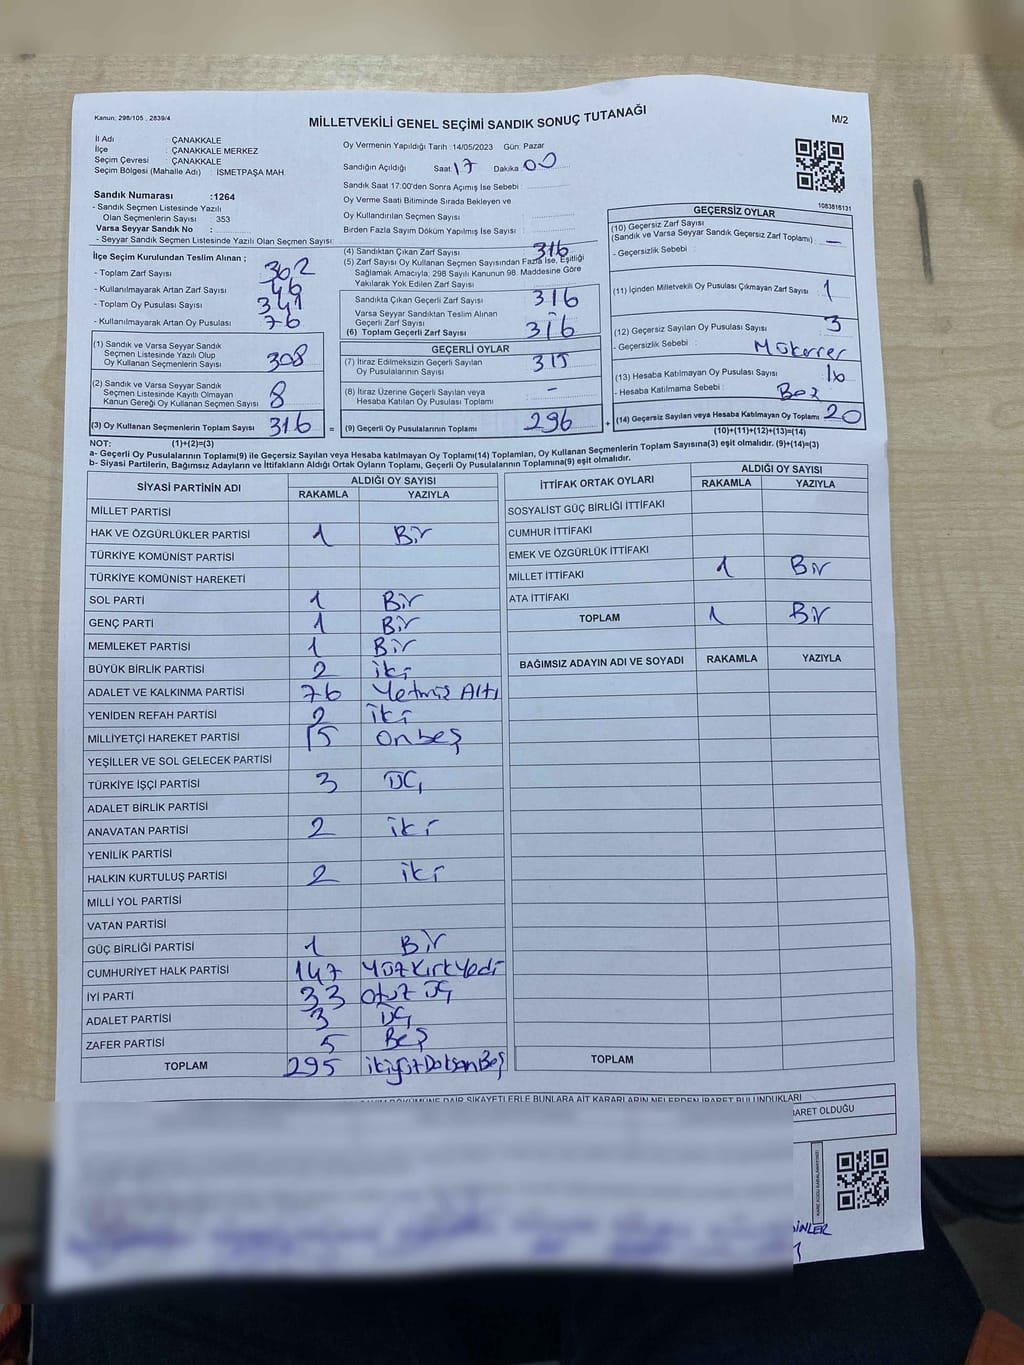 Kanun; 298/105 , 2839/4
MİLLETVEKİLİ GENEL SEÇİMİ SANDIK SONUÇ TUTANAĞI
M/2
İl Adı : ÇANAKKALE
İlçe : ÇANAKKALE MERKEZ
Seçim Çevresi : ÇANAKKALE
Seçim Bölgesi (Mahalle Adı) : İSMETPAŞA MAH
Sandık Numarası :1264
- Sandık Seçmen Listesinde Yazılı
Olan Seçmenlerin Sayısı : 353
Varsa Seyyar Sandık No :
- Seyyar Sandık Seçmen Listesinde Yazılı Olan Seçmen Sayısı:
Oy Vermenin Yapıldığı Tarih :14/05/2023 Gün: Pazar
Sandığın Açıldığı Saat: 17 Dakika: 00
Sandık Saat 17:00'den Sonra Açımış İse Sebebi :
Oy Verme Saati Bitiminde Sırada Bekleyen ve
Oy Kullandırılan Seçmen Sayısı :
Birden Fazla Sayım Döküm Yapılmış İse Sayısı :
1083816131
İlçe Seçim Kurulundan Teslim Alınan ;
- Toplam Zarf Sayısı 362
- Kullanılmayarak Artan Zarf Sayısı 46
- Toplam Oy Pusulası Sayısı
- Kullanılmayarak Artan Oy Pusulası 76
(1) Sandık ve Varsa Seyyar Sandık
Seçmen Listesinde Yazılı Olup
Oy Kullanan Seçmenlerin Sayısı 308
(2) Sandık ve Varsa Seyyar Sandık
Seçmen Listesinde Kayıtlı Olmayan
Kanun Gereği Oy Kullanan Seçmen Sayısı 8
(3) Oy Kullanan Seçmenlerin Toplam Sayısı 316 =
(4) Sandıktan Çıkan Zarf Sayısı 316
(5) Zarf Sayısı Oy Kullanan Seçmen Sayısından Fazla İse, Eşitliği
Sağlamak Amacıyla; 298 Sayılı Kanunun 98. Maddesine Göre
Yakılarak Yok Edilen Zarf Sayısı
Sandıkta Çıkan Geçerli Zarf Sayısı 316
Varsa Seyyar Sandıktan Teslim Alınan
Geçerli Zarf Sayısı -
(6) Toplam Geçerli Zarf Sayısı 316
GEÇERLİ OYLAR
(7) İtiraz Edilmeksizin Geçerli Sayılan
Oy Pusulalarının Sayısı 315
(8) İtiraz Üzerine Geçerli Sayılan veya
Hesaba Katılan Oy Pusulası Toplamı -
(9) Geçerli Oy Pusulalarının Toplamı 296 +
GEÇERSİZ OYLAR
(10) Geçersiz Zarf Sayısı
(Sandık ve Varsa Seyyar Sandık Geçersiz Zarf Toplamı) : —
- Geçersizlik Sebebi :
(11) İçinden Milletvekili Oy Pusulası Çıkmayan Zarf Sayısı 1
(12) Geçersiz Sayılan Oy Pusulası Sayısı : 3
- Geçersizlik Sebebi : Mükerrer
(13) Hesaba Katılmayan Oy Pusulası Sayısı : 16
- Hesaba Katılmama Sebebi : Boz
(14) Geçersiz Sayılan veya Hesaba Katılmayan Oy Toplamı 20
(10)+(11)+(12)+(13)=(14)
NOT: (1)+(2)=(3)
a- Geçerli Oy Pusulalarının Toplamı(9) ile Geçersiz Sayılan veya Hesaba katılmayan Oy Toplamı(14) Toplamları, Oy Kullanan Seçmenlerin Toplam Sayısına(3) eşit olmalıdır. (9)+(14)=(3)
b- Siyasi Partilerin, Bağımsız Adayların ve İttifakların Aldığı Ortak Oyların Toplamı, Geçerli Oy Pusulalarının Toplamına(9) eşit olmalıdır.
SİYASİ PARTİNİN ADI ALDIĞI OY SAYISI
RAKAMLA YAZIYLA
MİLLET PARTİSİ
HAK VE ÖZGÜRLÜKLER PARTİSİ 1 Bir
TÜRKİYE KOMÜNİST PARTİSİ
TÜRKİYE KOMÜNİST HAREKETİ
SOL PARTİ 1 Bir
GENÇ PARTİ 1 Bir
MEMLEKET PARTİSİ 1 Bir
BÜYÜK BİRLİK PARTİSİ 2 iki
ADALET VE KALKINMA PARTİSİ 76 Yetmiş Altı
YENİDEN REFAH PARTİSİ 2 iki
MİLLİYETÇİ HAREKET PARTİSİ 15 onbeş
YEŞİLLER VE SOL GELECEK PARTİSİ
TÜRKİYE İŞÇİ PARTİSİ 3 ÜÇ
ADALET BİRLİK PARTİSİ
ANAVATAN PARTİSİ 2 iki
YENİLİK PARTİSİ
HALKIN KURTULUŞ PARTİSİ 2 iki
MİLLİ YOL PARTİSİ
VATAN PARTİSİ
GÜÇ BİRLİĞİ PARTİSİ 1 Bir
CUMHURİYET HALK PARTİSİ 147 YüzKırkYedi
İYİ PARTİ 33 otuz üç
ADALET PARTİSİ 3 üç
ZAFER PARTİSİ 5 Beş
TOPLAM 295 ikiyüzDoksanBeş
İTTİFAK ORTAK OYLARI ALDIĞI OY SAYISI
RAKAMLA YAZIYLA
SOSYALİST GÜÇ BİRLİĞİ İTTİFAKI
CUMHUR İTTİFAKI
EMEK VE ÖZGÜRLÜK İTTİFAKI
MİLLET İTTİFAKI 1 Bir
ATA İTTİFAKI
TOPLAM 1 Bir
BAĞIMSIZ ADAYIN ADI VE SOYADI RAKAMLA YAZIYLA
TOPLAM
DÖKÜMÜNE DAİR ŞİKAYETLERLE BUNLARA AİT KARARLARIN NELERDEN İBARET BULUNDUKLARI
BARET OLDUĞU